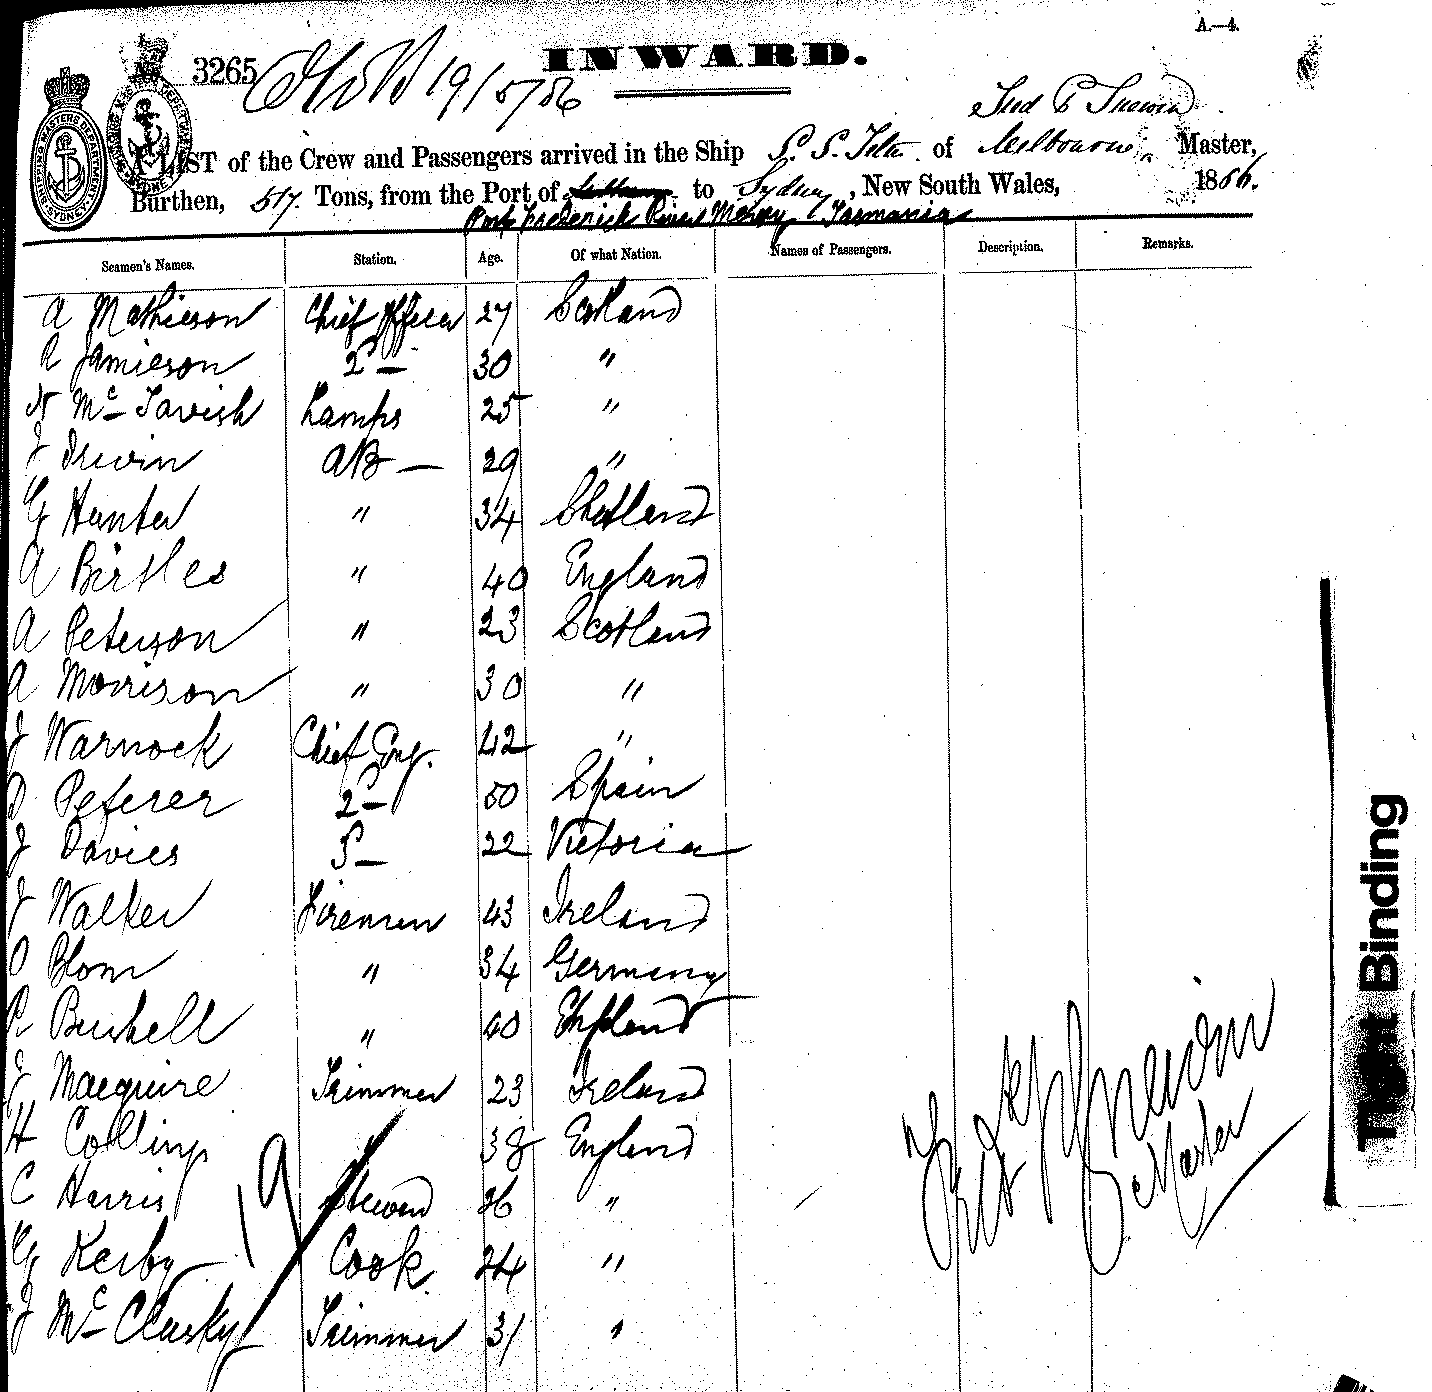 A.—4.
3265 19/5/86 INWARD.
A LIST of the Crew and Passengers arrived in the Ship S. S. of Melbourne, Master,
Burthen, 517 Tons, from the Port of to Sydney, New South Wales, 1886.
Port Frederick River Mersey Tasmania
Seamen's Names. Station. Age. Of what Nation. Names of Passengers. Description. Remarks.
A Mathieson Chief Officer 27 Scotland
R Jamieson 2 — 30 "
N Mc Tavish Lamps 25 "
J Irwin AB — 29 "
G Hunter " 34 Shetland
A Birtles " 40 England
A Peterson " 23 Scotland
A Morrison " 30 "
J Warnock Chief Eng. 42 "
D Peferer 2 — 50 Spain
J Davies 3 — 22 Victoria
J Walker Firemen 43 Ireland
O Blom " 34 Germany
R Bushell " 40 England
J Macquire Trimmer 23 Ireland
H Collings 38 England
C Harris Steward 26 "
G Kerby Cook 24 "
J Mc Clusky Trimmer 31 "
19
Master
Tight Binding
SHIPPING MASTERS DEPARTMENT SYDNEY